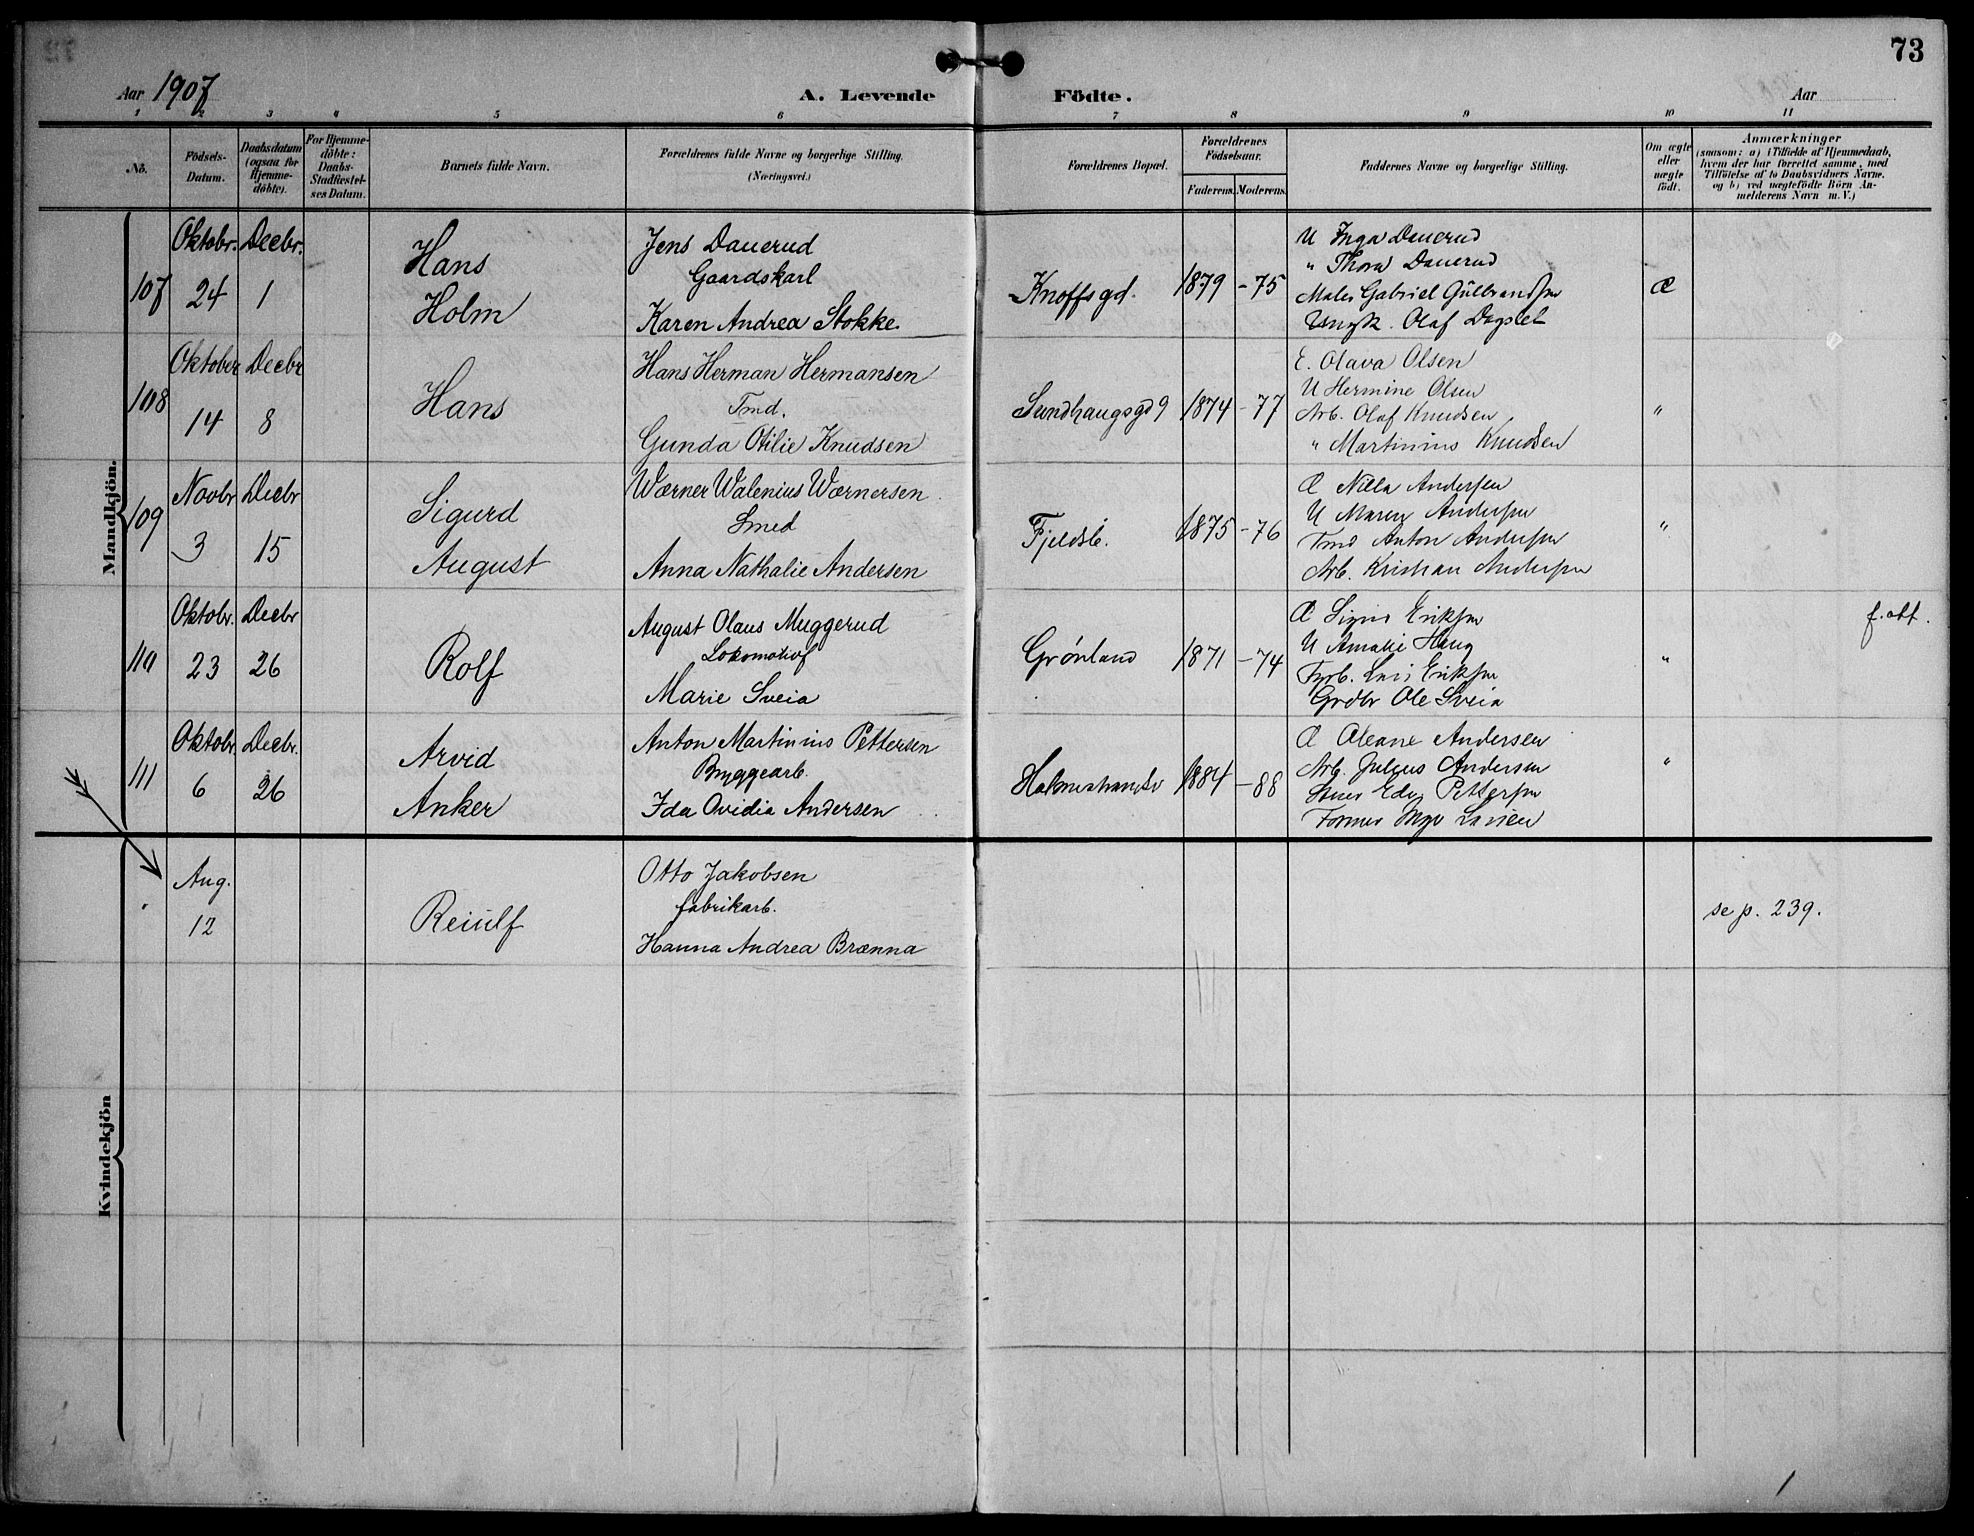 73
Aar 1907
A. Levende Födte.
Aar
1 2 3 4 5 6 7 8 9 10 11
No.
Födsels-Datum.
Daabsdatum (ogsaa for Hjemme-döbte).
For Hjemme-döbte: Daabs-Stadfæstel-ses Datum.
Barnets fulde Navn.
Forældrenes fulde Navne og borgerlige Stilling.
(Næringsvei.)
Forældrenes Bopæl.
Forældrenes Födselsaar.
Faderens. Moderens.
Faddernes Navne og borgerlige Stilling.
Om ægte eller uægte födt.
Anmærkninger
(saasom: a) i Tilfælde af Hjemmedaab,
hvem der har forrettet samme, med
Tilföielse af to Daabsvidners Navne.
og b) ved uægtefödte Börn An-
melderens Navn m. V.)
Mandkjön.
107 Oktobr. 24 Decbr. 1
Hans
Holm
Jens Dauerud
Gaardskarl
Karen Andrea Stokke
Knoffsgd. 1879 - 75
U Inga Dauerud
" Thora Dauerud
Maler Gabriel Gulbrandsen
Ungk. Olaf
Æ
108 Oktober 14 Decbr 8
Hans
Hans Herman Hermansen
Tmd.
Gunda Otilie Knudsen
Sundhaugsgd 9 1874 - 77
E. Olava Olsen
U Hermine Olsen
Arb. Olaf Knudsen
" Martinius Knudsen
"
109 Novbr 3 Decbr 15
Sigurd
August
Wærner Walenius Wærnersen
Smed
Anna Nathalie Andersen
Fjeldsb. 1875 - 76
Æ Nilla Andersen
U Maren Andersen
Tmd Anton Andersen
Arb. Kristian Andersen
"
110 Oktobr. 23 Decbr 26
Rolf
August Olaus Muggerud
Lokomotivf
Marie Sveia
Grønland 1871 - 74
Æ Signe Eriksen
U Amalie Haug
Fyrb. Eriksen
Grdbr Ole Sveia
"
f. att.
111 Oktobr. 6 Decbr. 26
Arvid
Anker
Anton Martinius Pettersen
Bryggearb.
Ida Ovidia Andersen
1884 - 88
Æ Oleane Andersen
Arb. Julius Andersen
Edv Pettersen
Former Larsen
"
Kvindekjön
Aug. 12
Reiulf
Otto Jakobsen
fabrikarb.
Hanna Andrea Brænna
se p. 239.